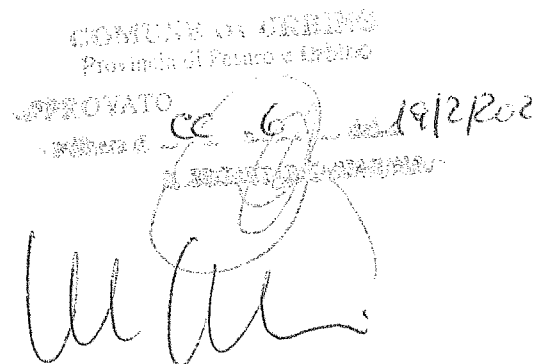 COMUNE DI URBINO
Provincia di Pesaro e Urbino
APPROVATO
delibera di CC n. 6 data 19/2/202
IL SEGRETARIO